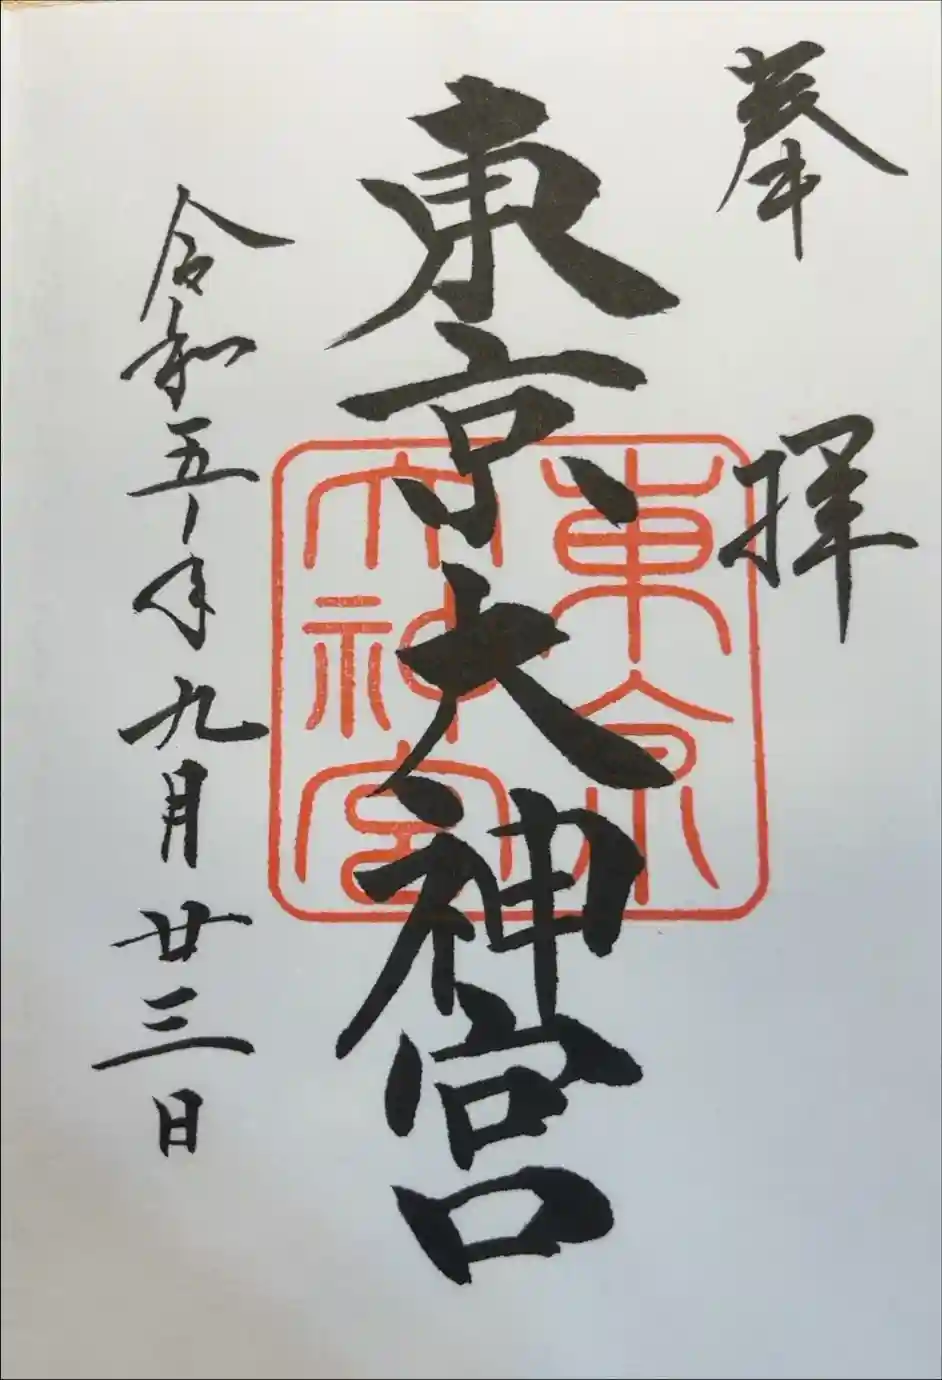 奉拝
東京大神宮
東京
大神宮
令和五年九月廿三日